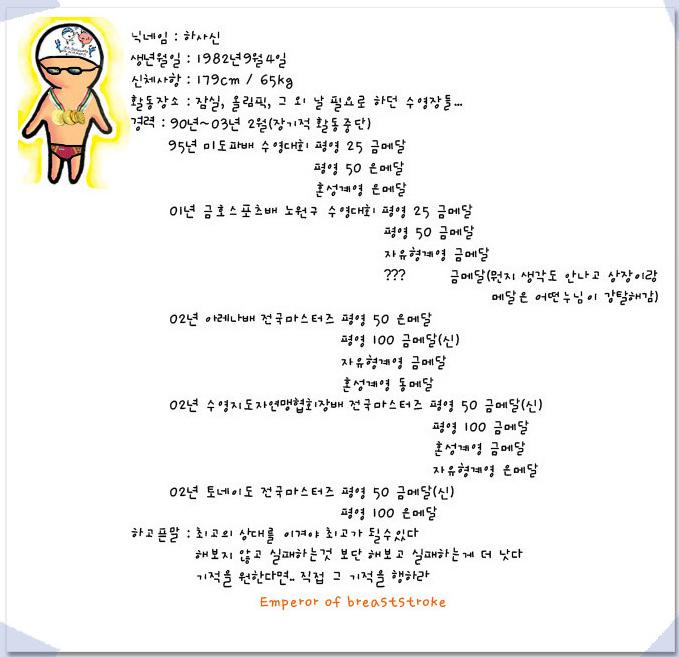 닉네임 : 하사신
생년월일 : 1982년9월4일
신체사항 : 179cm / 65kg
활동장소 : 잠실, 올림픽, 그 외 날 필요로 하던 수영장들...
경력 : 90년~03년 2월(장기적 활동중단)
95년 미도파배 수영대회 평영 25 금메달
평영 50 은메달
혼성계영 은메달
01년 금호스포츠배 노원구 수영대회 평영 25 금메달
평영 50 금메달
자유형계영 금메달
??? 금메달(뭔지 생각도 안나고 상장이랑
메달은 어떤누님이 강탈해감)
02년 아레나배 전국마스터즈 평영 50 은메달
평영 100 금메달(신)
자유형계영 금메달
혼성계영 동메달
02년 수영지도자연맹협회장배 전국마스터즈 평영 50 금메달(신)
평영 100 금메달
혼성계영 금메달
자유형계영 은메달
02년 토네이도 전국마스터즈 평영 50 금메달(신)
평영 100 은메달
하고픈말 : 최고의 상대를 이겨야 최고가 될수있다
해보지 않고 실패하는것 보단 해보고 실패하는게 더 낫다
기적을 원한다면.. 직접 그 기적을 행하라
Emperor of breaststroke